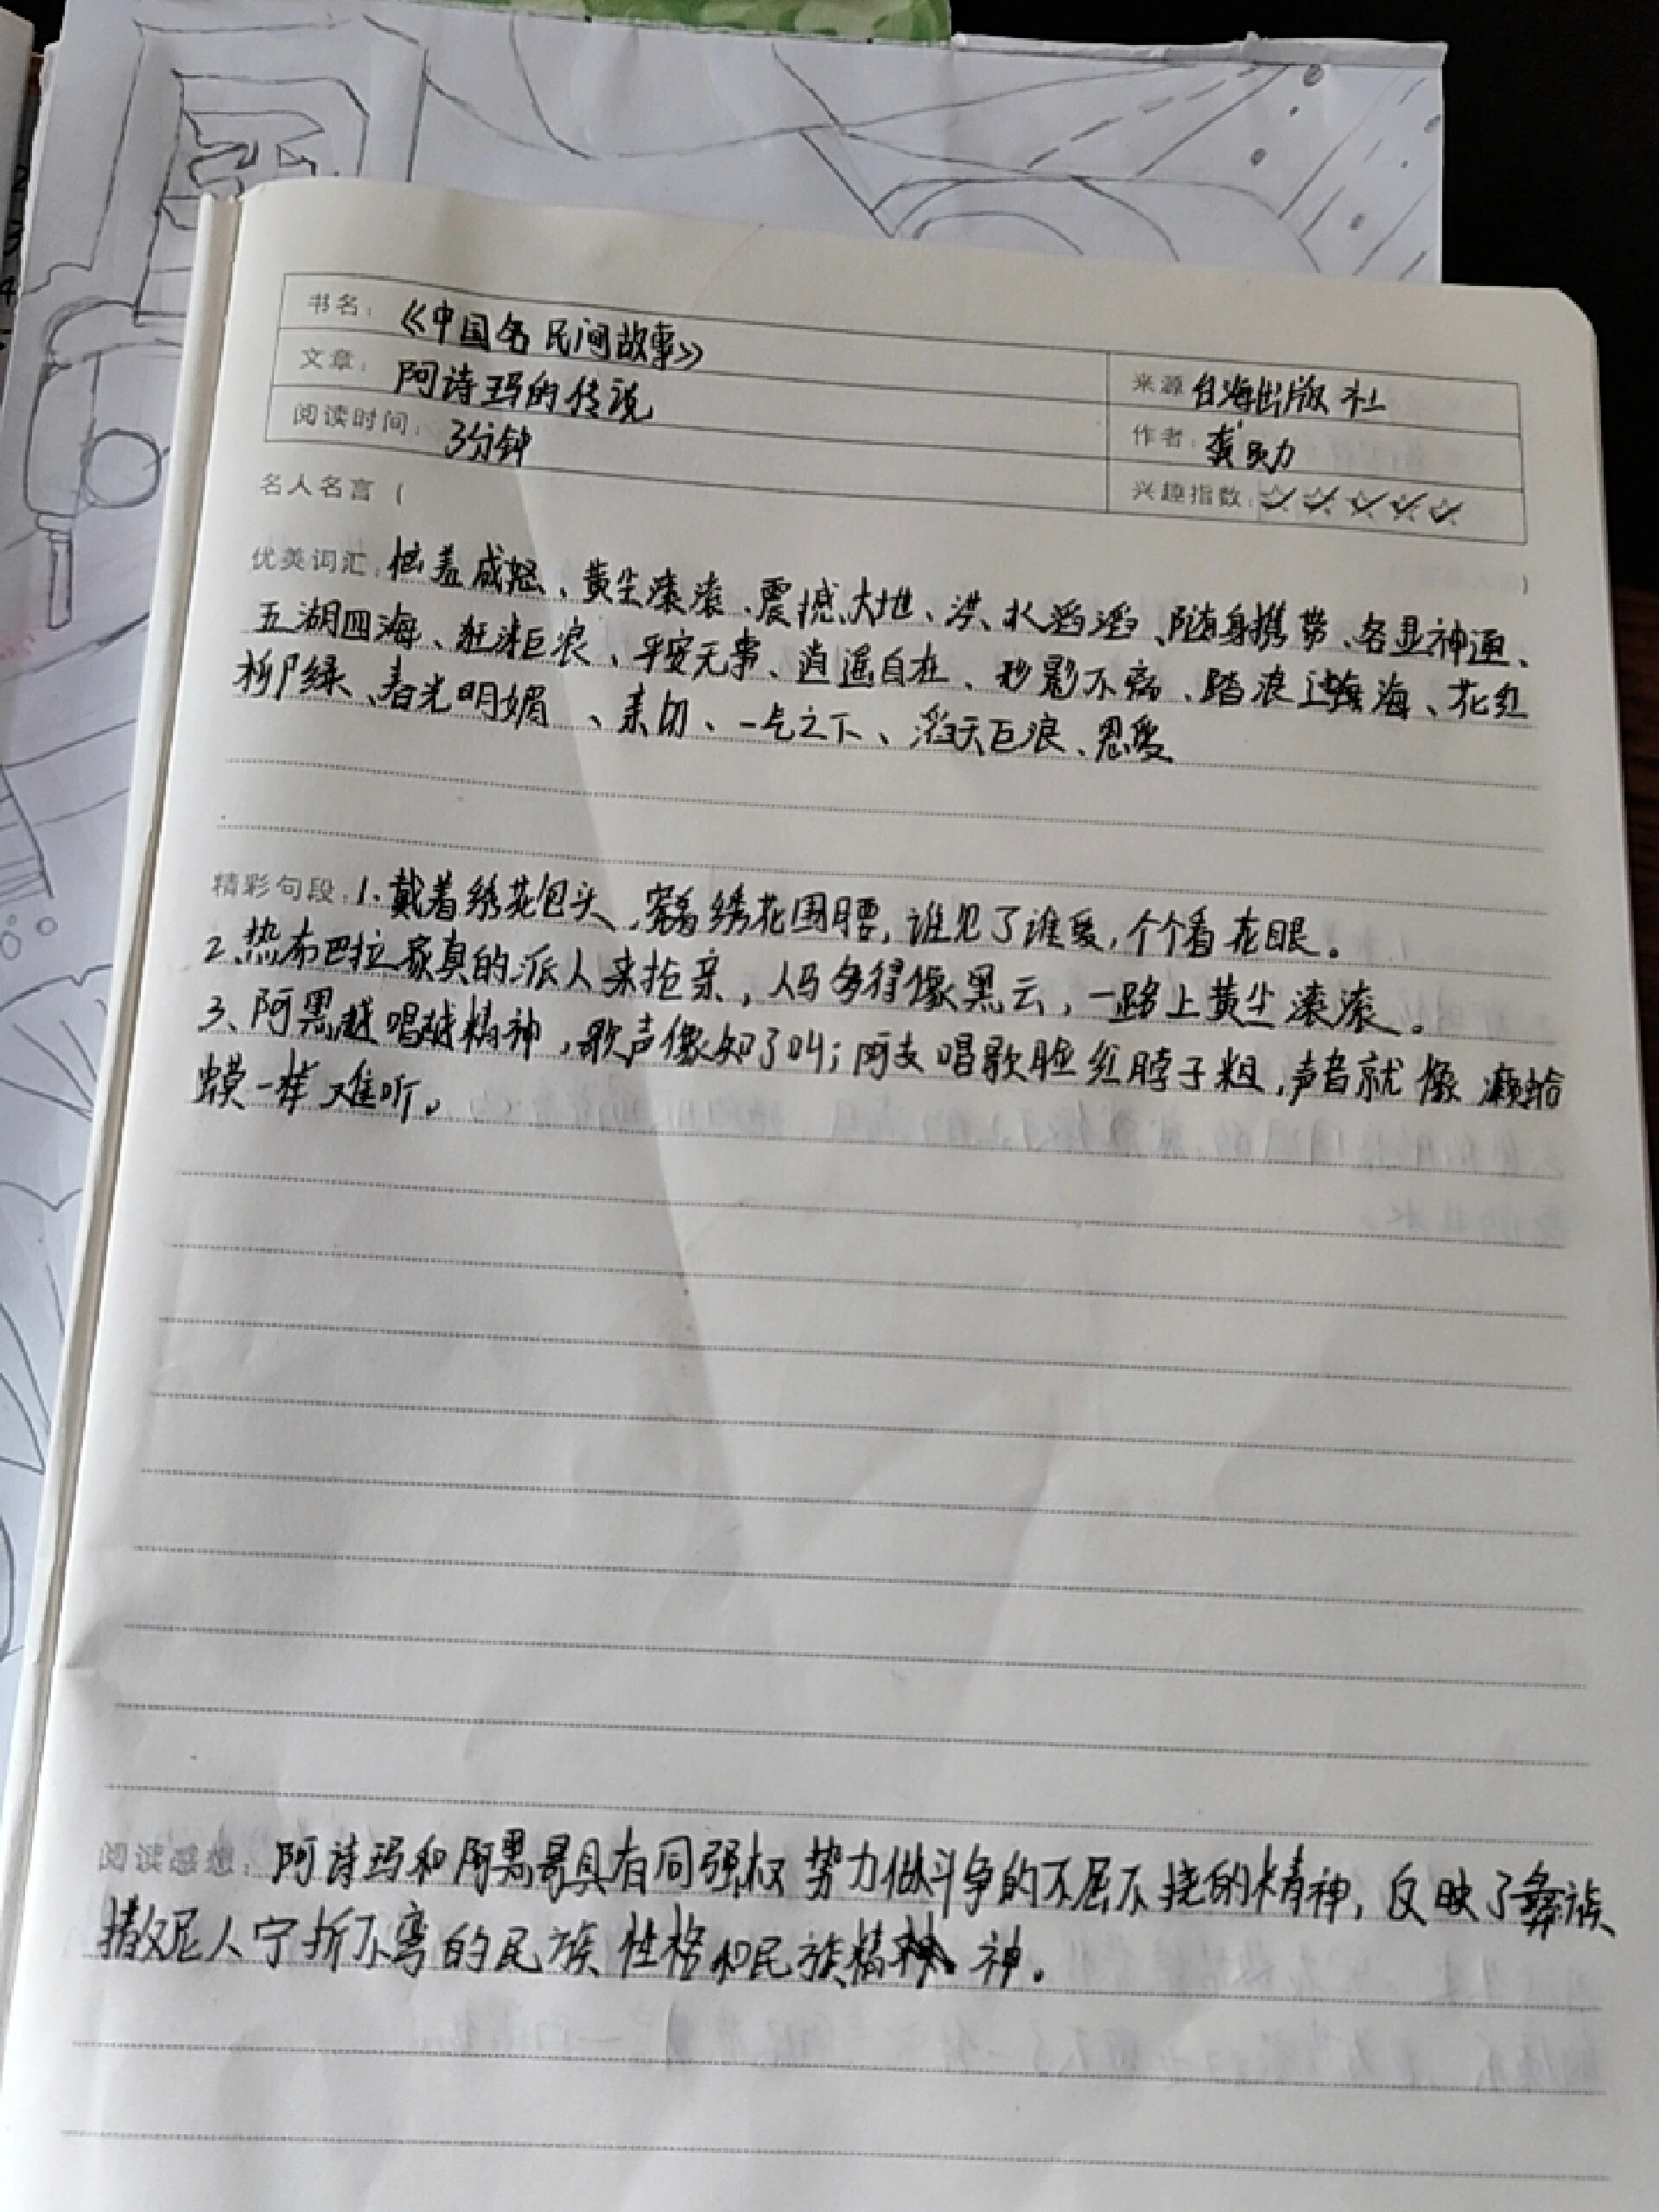 书名：《中国名民间故事》
文章：阿诗玛的传说
来源 台海出版社
阅读时间：3分钟
作者：龚勋
兴趣指数：☆☆☆☆☆
名人名言（ ）
优美词汇：恼羞成怒、黄尘滚滚、震撼大地、洪水滔滔、随身携带、各显神通、
五湖四海、狂涛巨浪、平安无事、逍遥自在、形影不离、踏浪过海、花红
柳绿、春光明媚、亲切、一气之下、滔天巨浪、忍受
精彩句段：1、戴着绣花包头，穿着绣花围腰，谁见了谁爱，个个看花眼。
2、热布巴拉家真的派人来抢亲，人马多得像黑云，一路上黄尘滚滚。
3、阿黑越唱越精神，歌声像知了叫；阿支唱歌脸红脖子粗，声音就像癞蛤
蟆一样难听。
阅读感想：阿诗玛和阿黑哥具有同强权势力做斗争的不屈不挠的精神，反映了彝族
撒尼人宁折不弯的民族性格和民族精神。